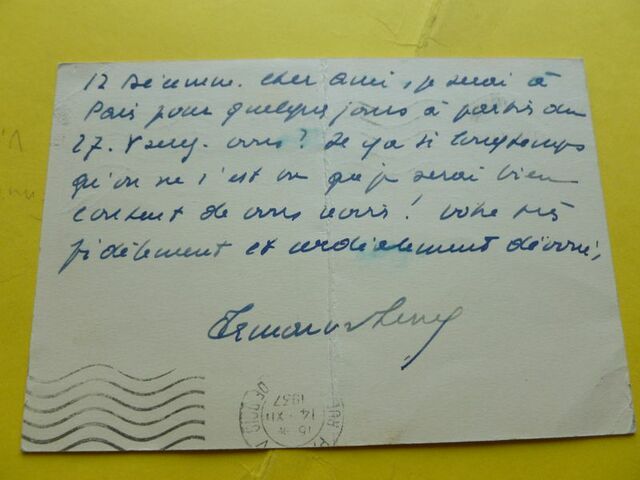 12 Décembre. Cher ami, je serai à
Paris pour quelques jours à partir du
27. Y serez-vous? Il y a si longtemps
qu'on ne s'est vu que je serai bien
content de vous revoir! votre très
fidèlement et cordialement dévoué,
14 · XII
1937